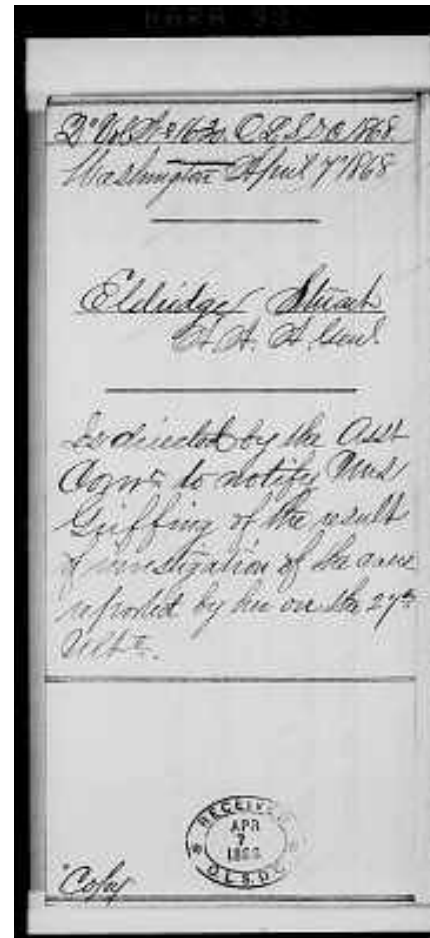 1868
Washington April 7" 1868
Eldridge Stuart
A. A. A. Genl
Is directed by the Asst
Comr to notify Mrs
Griffing of the result
of investigation of the case
reported by her on the 27th
Ulto.
RECEIVED
APR
7
Copy